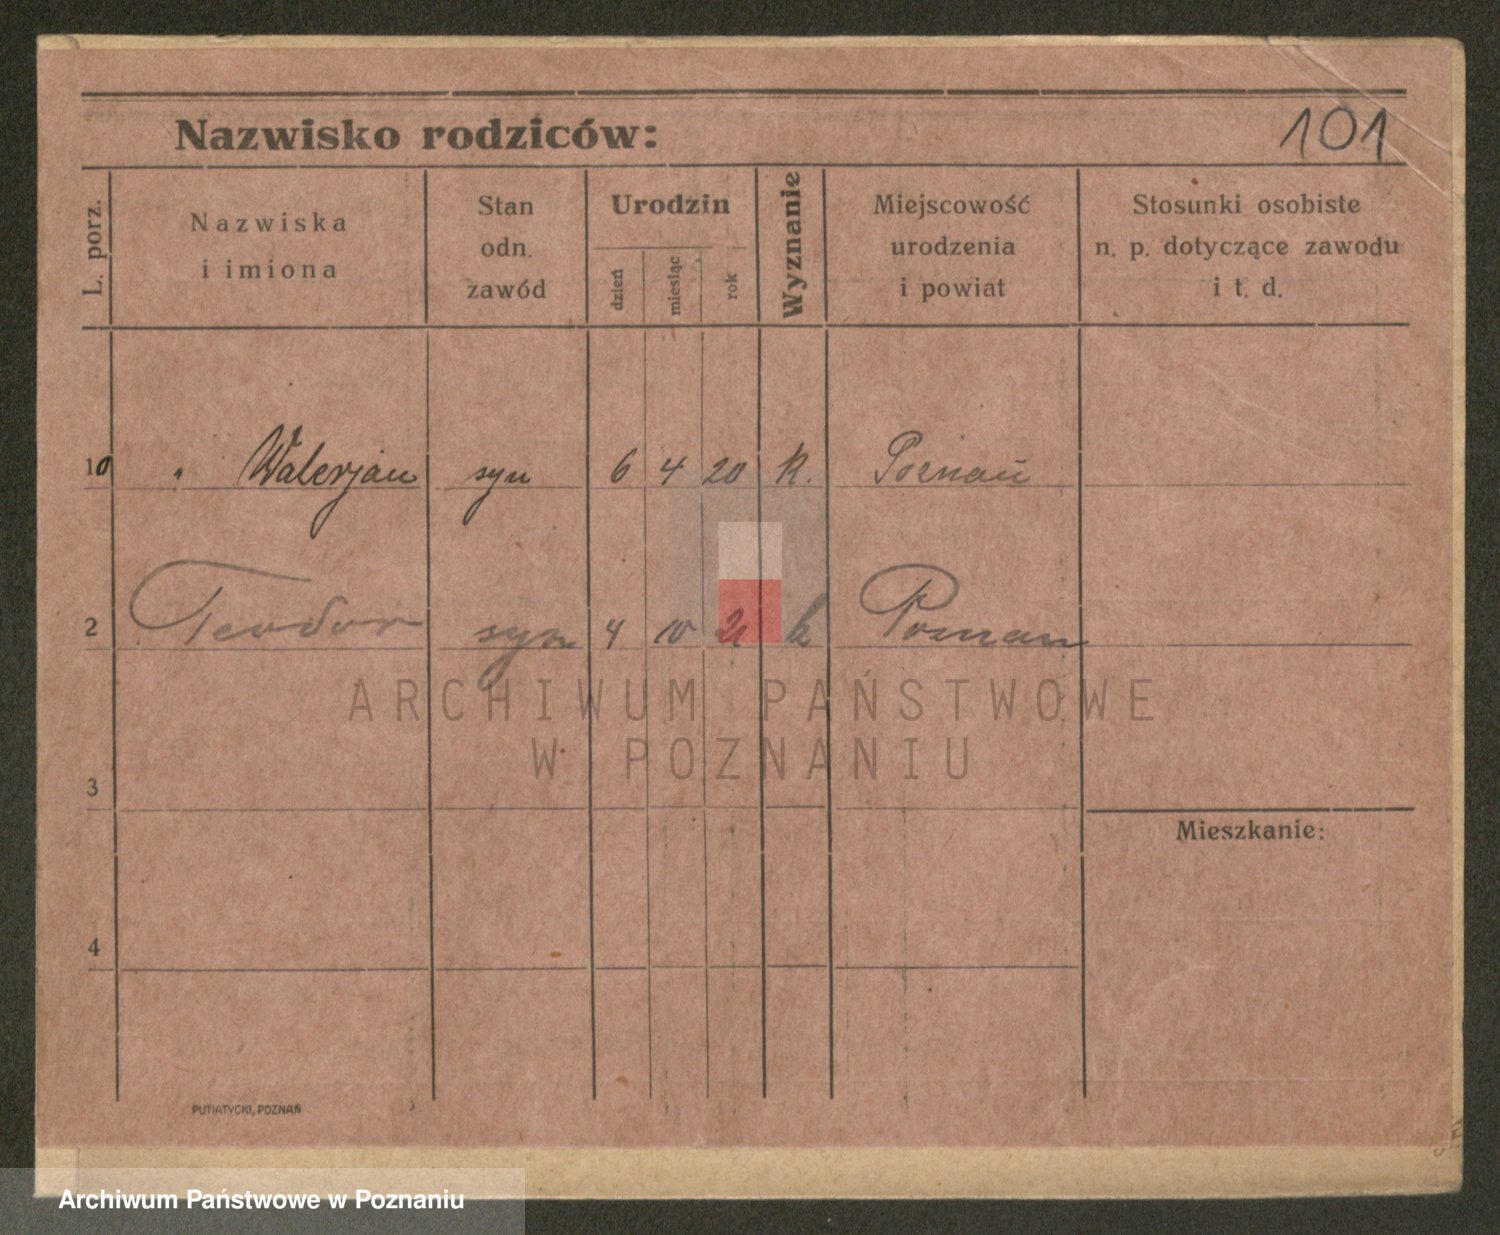 Nazwisko rodziców:
101
L. porz.
Nazwiska
i imiona
Stan
odn.
zawód
Urodzin
dzień
miesiąc
rok
Wyznanie
Miejscowość
urodzenia
i powiat
Stosunki osobiste
n. p. dotyczące zawodu
i t. d.
10 " Walerjan syn 6 4 20 k. Poznań
2 Teodor syn 4 10 21 k Poznan
ARCHIWUM PAŃSTWOWE
W POZNANIU
3
Mieszkanie:
4
PUTIATYCKI, POZNAŃ
Archiwum Państwowe w Poznaniu